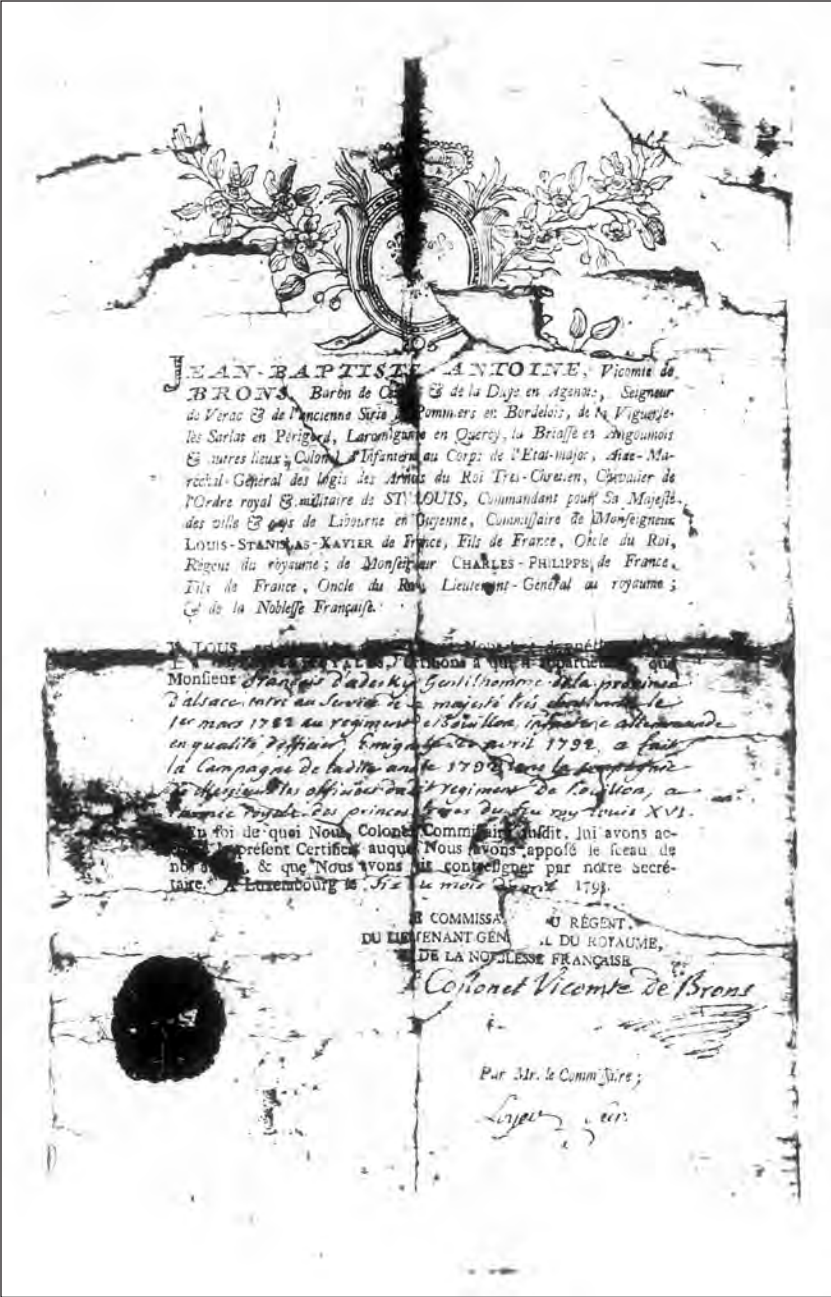 JEAN-BAPTISTE-ANTOINE, Vicomte de
BRONS, Baron de & de la Duye en Agenois, Seigneur
de Verac & de l'ancienne Sirie de Pommiers en Bordelois, de la Viguerie-
lès Sarlat en Périgord, en Quercy, la Briasse en Angoumois
& autres lieux; Colonel d'Infanterie au Corps de l'Etat-major, Aide-Ma-
réchal-Général des logis des Armées du Roi Très-Chretien, Chevalier de
l'Ordre royal & militaire de ST LOUIS, Commandant pour Sa Majesté
des ville & pays de Libourne en Guyenne, Commissaire de Monseigneur
LOUIS-STANISLAS-XAVIER de France, Fils de France, Oncle du Roi,
Régent du royaume; de Monseigneur CHARLES-PHILIPPE de France,
Fils de France, Oncle du Roi, Lieutenant-Général au royaume;
& de la Noblesse Française.
NOUS,
certifions à qui il appartiendra, que
Monsieur françois Gentilhomme de la province
d'alsace entré au Service de sa majesté très le
1er mars 1782 au regiment de Bouillon infanterie allemande
en qualité d'officier, Emigré avril 1792, a fait
la Campagne de ladite année 1792 dans la compagnie
de Messieurs les officiers dudit regiment de Bouillon, a
l'armée royale des princes freres du feu roy Louis XVI.
En foi de quoi Nous, Colonel Commissaire susdit, lui avons ac-
le présent Certificat auquel Nous avons apposé le sceau de
nos & que Nous avons fait contresigner par notre Secré-
taire. A Luxembourg le du mois d'avril 1793.
LE COMMISSAIRE DU RÉGENT,
DU LIEUTENANT GÉNÉRAL DU ROYAUME,
DE LA NOBLESSE FRANÇAISE
Colonel Vicomte De Brons
Par Mr. le Commissaire;